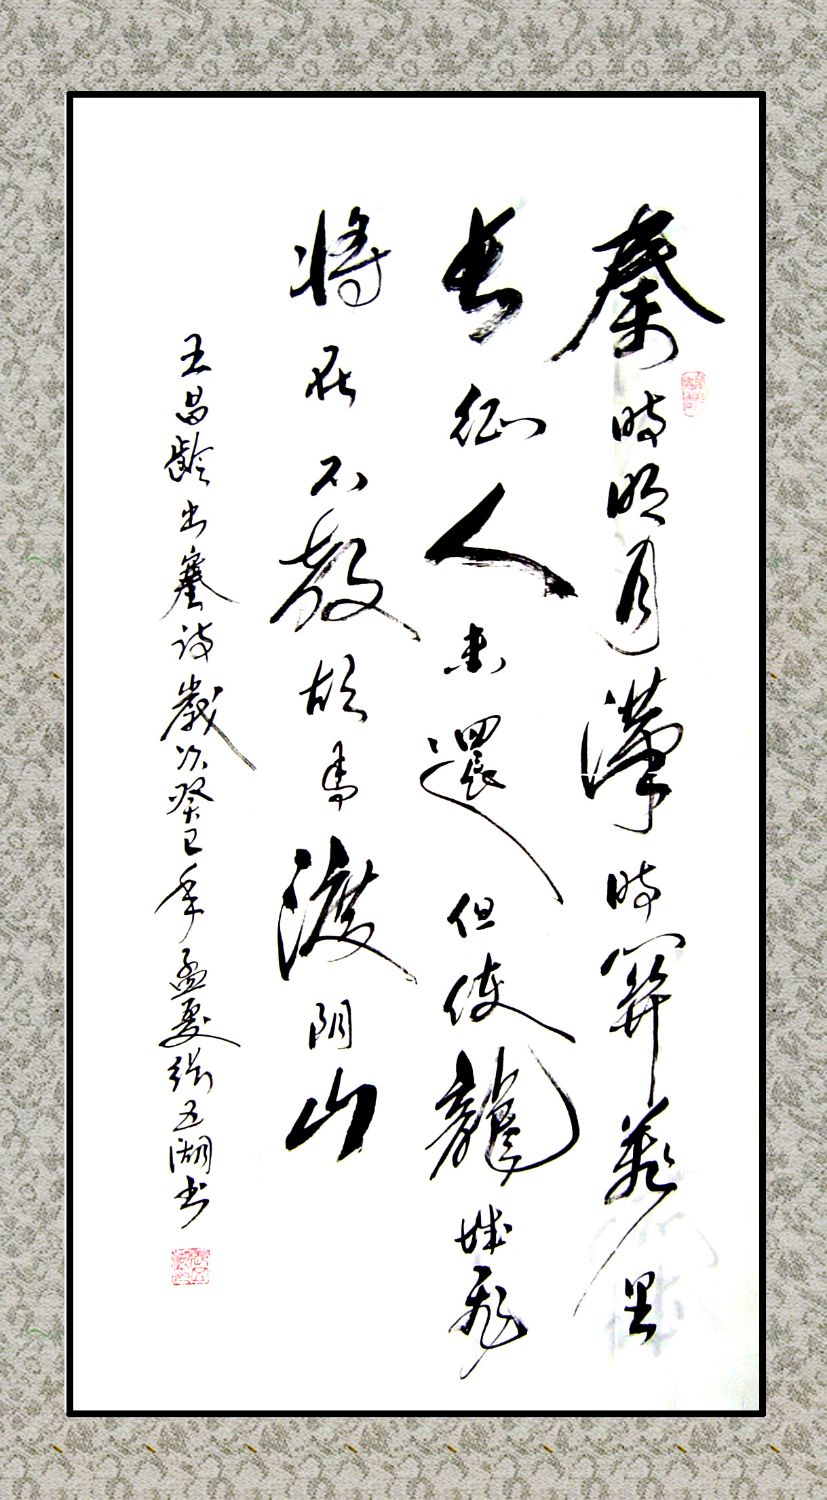 秦時明月漢時關萬里
长征人未還但使龍城飛
将在不教胡馬渡阴山
王昌齡出塞诗歲次癸巳年孟夏張五湖书